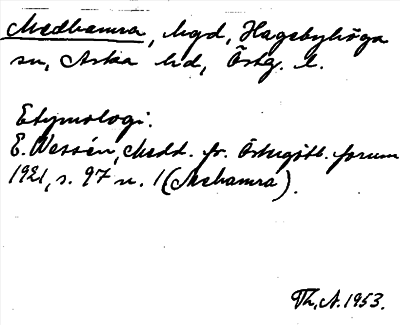 Medhamra, bgd, Hagebyhöga
sn, Aska hd, Östg. l.
Etymologi:
E. Wessén, Medd. fr. Östergötl. fornm
1921, s. 97 n. 1 (Mehamra).
Th, A. 1953.